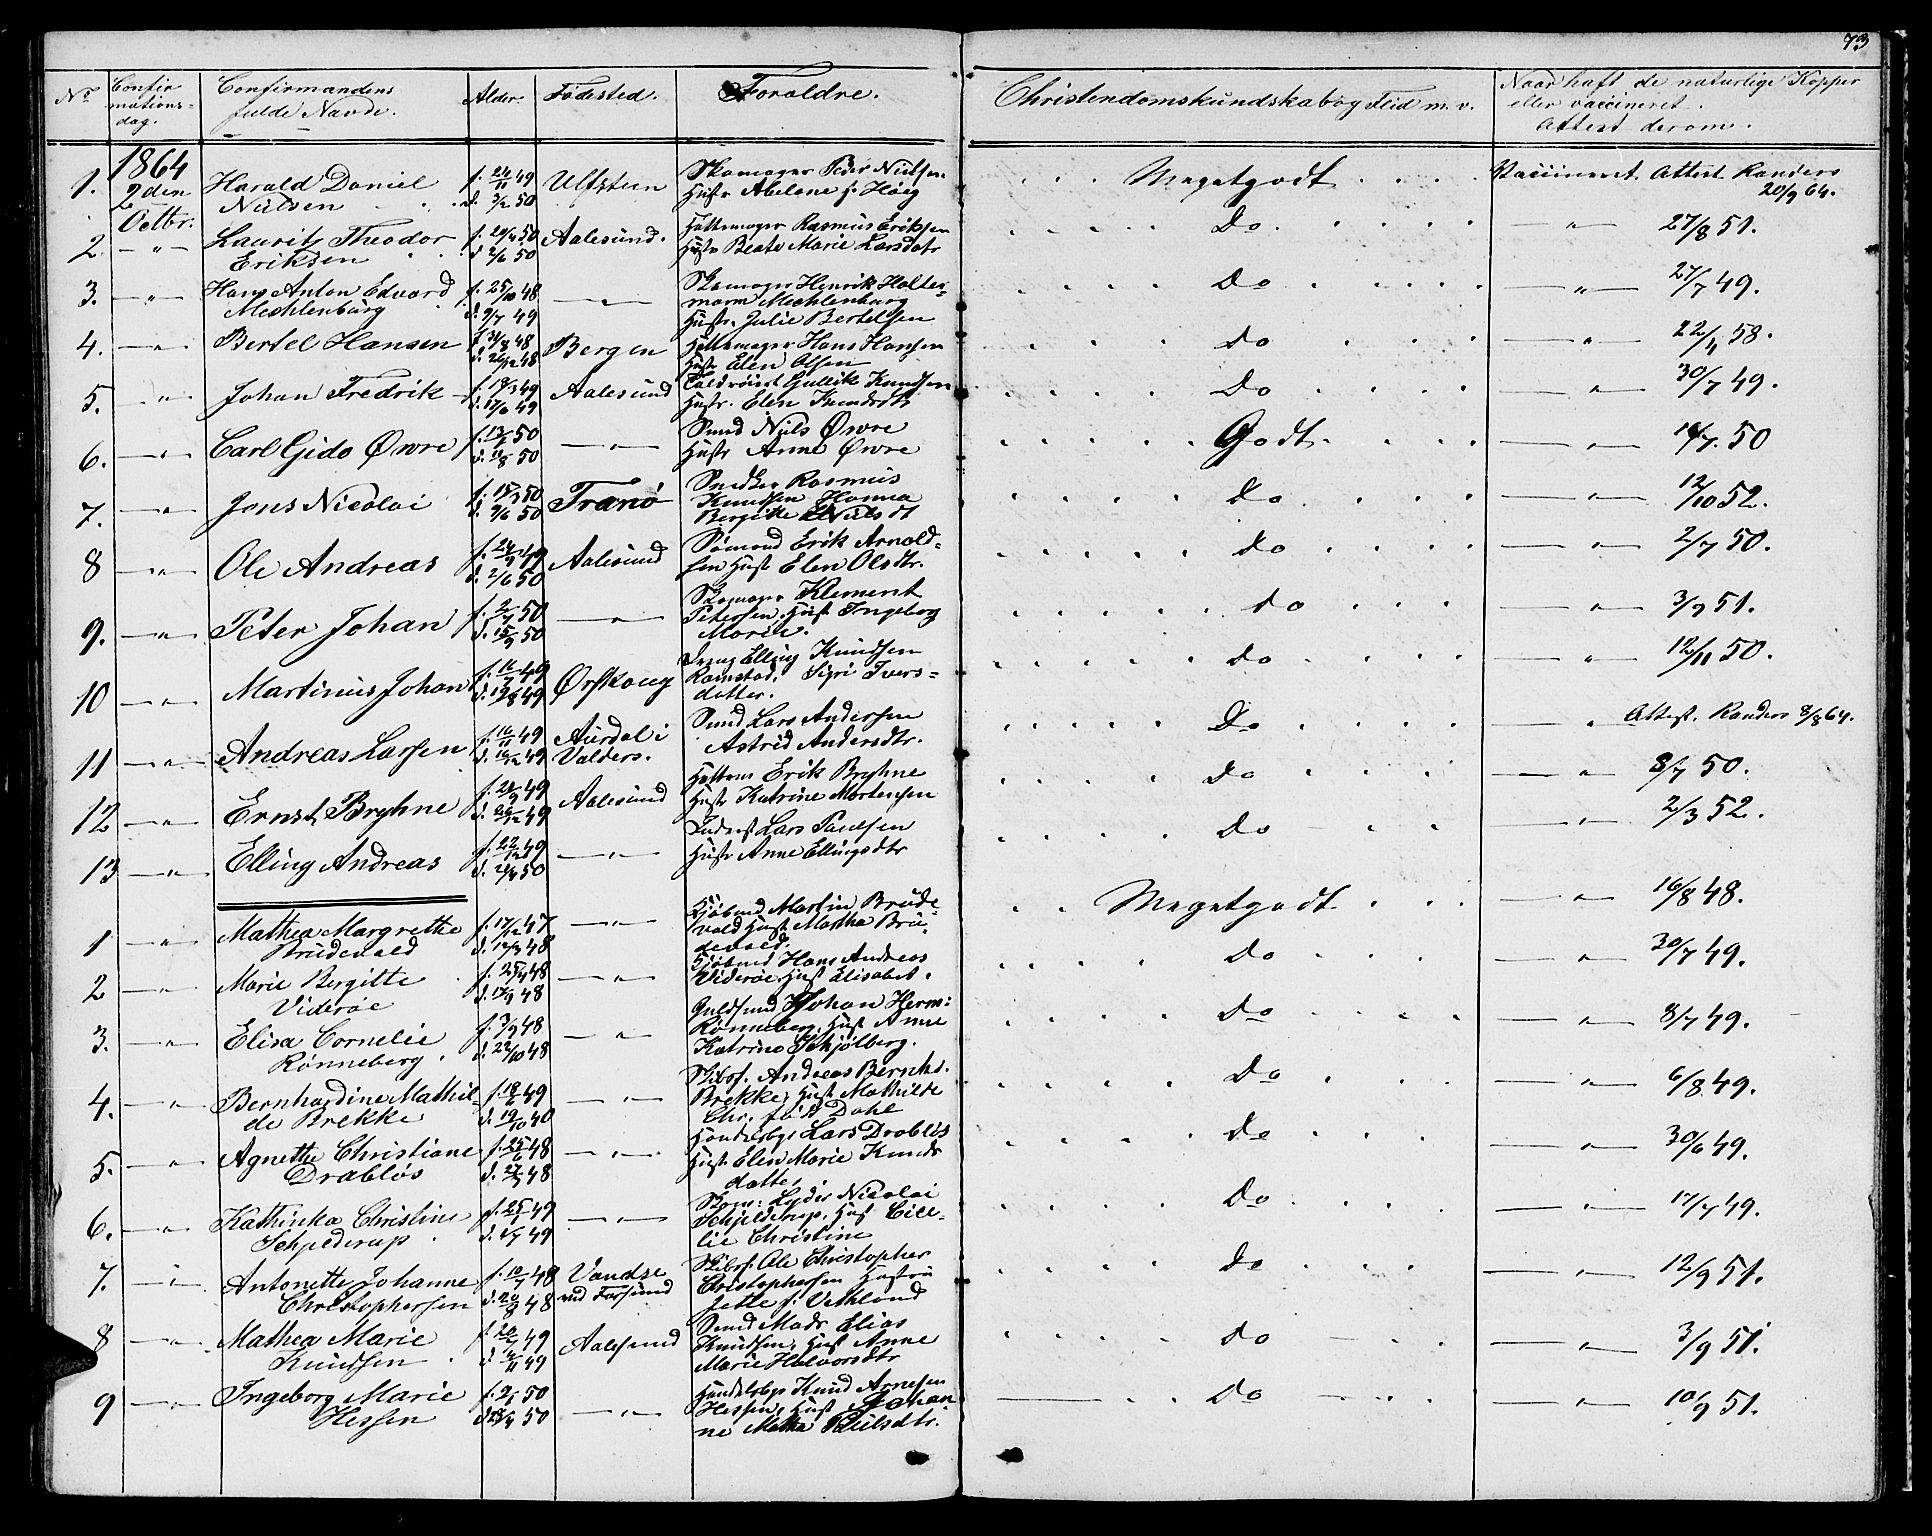 73
No Confirmationsdag. Confirmandens fulde Navn. Alder. Fødested. Forældre. Christendomskundskab og Flid m. v. Naar haft de naturlige Kopper eller vaccineret. Attest derom.
1864
1. 2den Octbr. Harald Daniel Nielsen f. 24/11 49 d. 3/2 50 Ulfsteen Skomager Peder Nielsen Hustr Abelone f. Høeg Megetgodt Vaccineret Attest Randers 20/9 64.
2. —"— Lauritz Theodor Eriksen f. 20/4 50 d. 2/6 50 Aalesund. Hattemager Rasmus Eriksen Hustr Beate Marie Larsdatr Do —"— 27/8 51.
3. —"— Hans Anton Edvard Mechlenburg f. 25/10 48 d. 9/7 49 —"— Skomager Henrik Holtermann Mechlenburg Hustr. Julie Bertelsen Do —"— 27/7 49.
4. —"— Bertel Hansen f. 31/8 48 d. 26/12 48 Bergen Hattemager Hans Hansen Hustr Elen Olsen Do —"— 22/4 58.
5. —"— Johan Fredrik f. 18/3 49 d. 17/6 49 Aalesund Gullik Knudsen Hustr. Elen Knudsdtr Do —"— 30/7 49.
6. —"— Carl Gido Øwre 50 d. 11/8 50 —"— Smed Niels Øwre Hustr Anne Øwre Godt —"— 50
7. —"— Jens Nicolai f. 15/3 50 d. 9/6 50 Tranø Snedker Rasmus Knudsen Hanna Bergitte Nielsdt Do —"— 12/10 52.
8 —"— Ole Andreas f. 49 d. 2/6 50 Aalesund Sømand Erik Arnoldsen Hust Elen Olsdtr. Do —"— 2/7 50.
9. —"— Peter Johan 50 d. 15/9 50 —"— Skomager Klement Petersen, Hust Ingeborg Marie. Do —"— 3/9 51.
10 —"— Martinius Johan f. 16/7 49 d. 19/8 49 Ørskoug Elling Knudsen Ramstad, Sigri Iversdatter. Do —"— 12/11 50.
11 —"— Andreas Larsen f. 16/11 49 d. 16/12 49 Aurdal i Valders. Smed Lars Andersen Astrid Andersdtr. Do —"— Attest. Randers 8/8 64.
12 —"— Ernst Bryhne f. 49 d. 26/12 49 Aalesund Erik Bryhne Hustr Katrine Mortensen Do —"— 8/7 50.
13 —"— Elling Andreas f. 22/12 49 50 —"— Lars Paulsen Hustr Anne Ellingsdtr Do —"— 2/3 52.
1 —"— Mathea Margrethe Brudevold f. 17/12 47 d. 12/3 48 —"— Kjøbmd Martin Brudevold Hust Martha Brudevold. Megetgodt —"— 16/8 48.
2 —"— Marie Bergitte Viderøe f. 25/4 48 48 —"— Kjøbmd Hans Andreas Viderøe, Hust Elisabet. Do —"— 30/7 49.
3. —"— Elisa Cornelie Rønneberg. f. 3/9 48 d. 22/10 48 —"— Guldsmed Johan Herm: Rønneberg, Hust Anne Katrine Schjølberg. Do —"— 8/7 49.
4. —"— Bernhardine Mathilde Brekke f. 18/6 49 d. 19/10 40 —"— Skibsf. Andreas Bernhd. Brekke, Hust Mathilde Chr. født Dahl Do —"— 6/8 49.
5. —"— Agnette Christiane Drabløs f. 25/6 48 48 —"— Handelsbgr Lars Drabløs Hust Elen Marie Knudsdatter Do —"— 30/6 49.
6. —"— Kathinka Christine Schjelderup. 49 49 —"— Lyder Nicolai Schjelderup, Hust Cicelie Christine Do —"— 17/7 49.
7. —"— Antonette Johanne Christophersen f. 10/7 48 d. 20/8 48 Vandse ved Farsund Skibsf. Ole Christopher Christophersen Hustru Jette f. Vethland Do —"— 12/9 51.
8 —"— Mathea Marie Knudsen f. 49 49 Aalesund Smed Mads Elias Knudsen, Hust Anne Marie Halvorsdtr Do —"— 3/9 51.
9 —"— Ingeborg Marie Hessen f. 50 50 —"— Handelsbgr Knud Arnesen Hessen, Hust Johanne Mathea Paulsdtr. Do —"— 10/9 51.